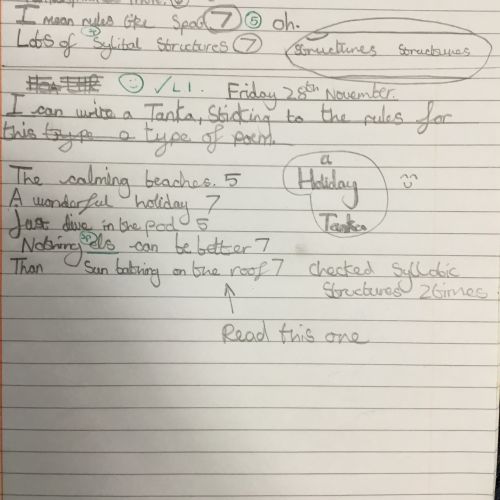 I mean rules like Spag 7 5 oh.
Lots of Sylital Structures 7
Structures Structures
LI. Friday 28th November.
I can write a Tanka, Sticking to the rules for
this type a type of poem.
a
Holiday
Tanka
The calming beaches. 5
A wonderful holiday 7
Just dive in the pool 5
Nothing els can be better 7
Than Sun bathing on the roof 7 checked Syllabic
Structures 2times
Read this one